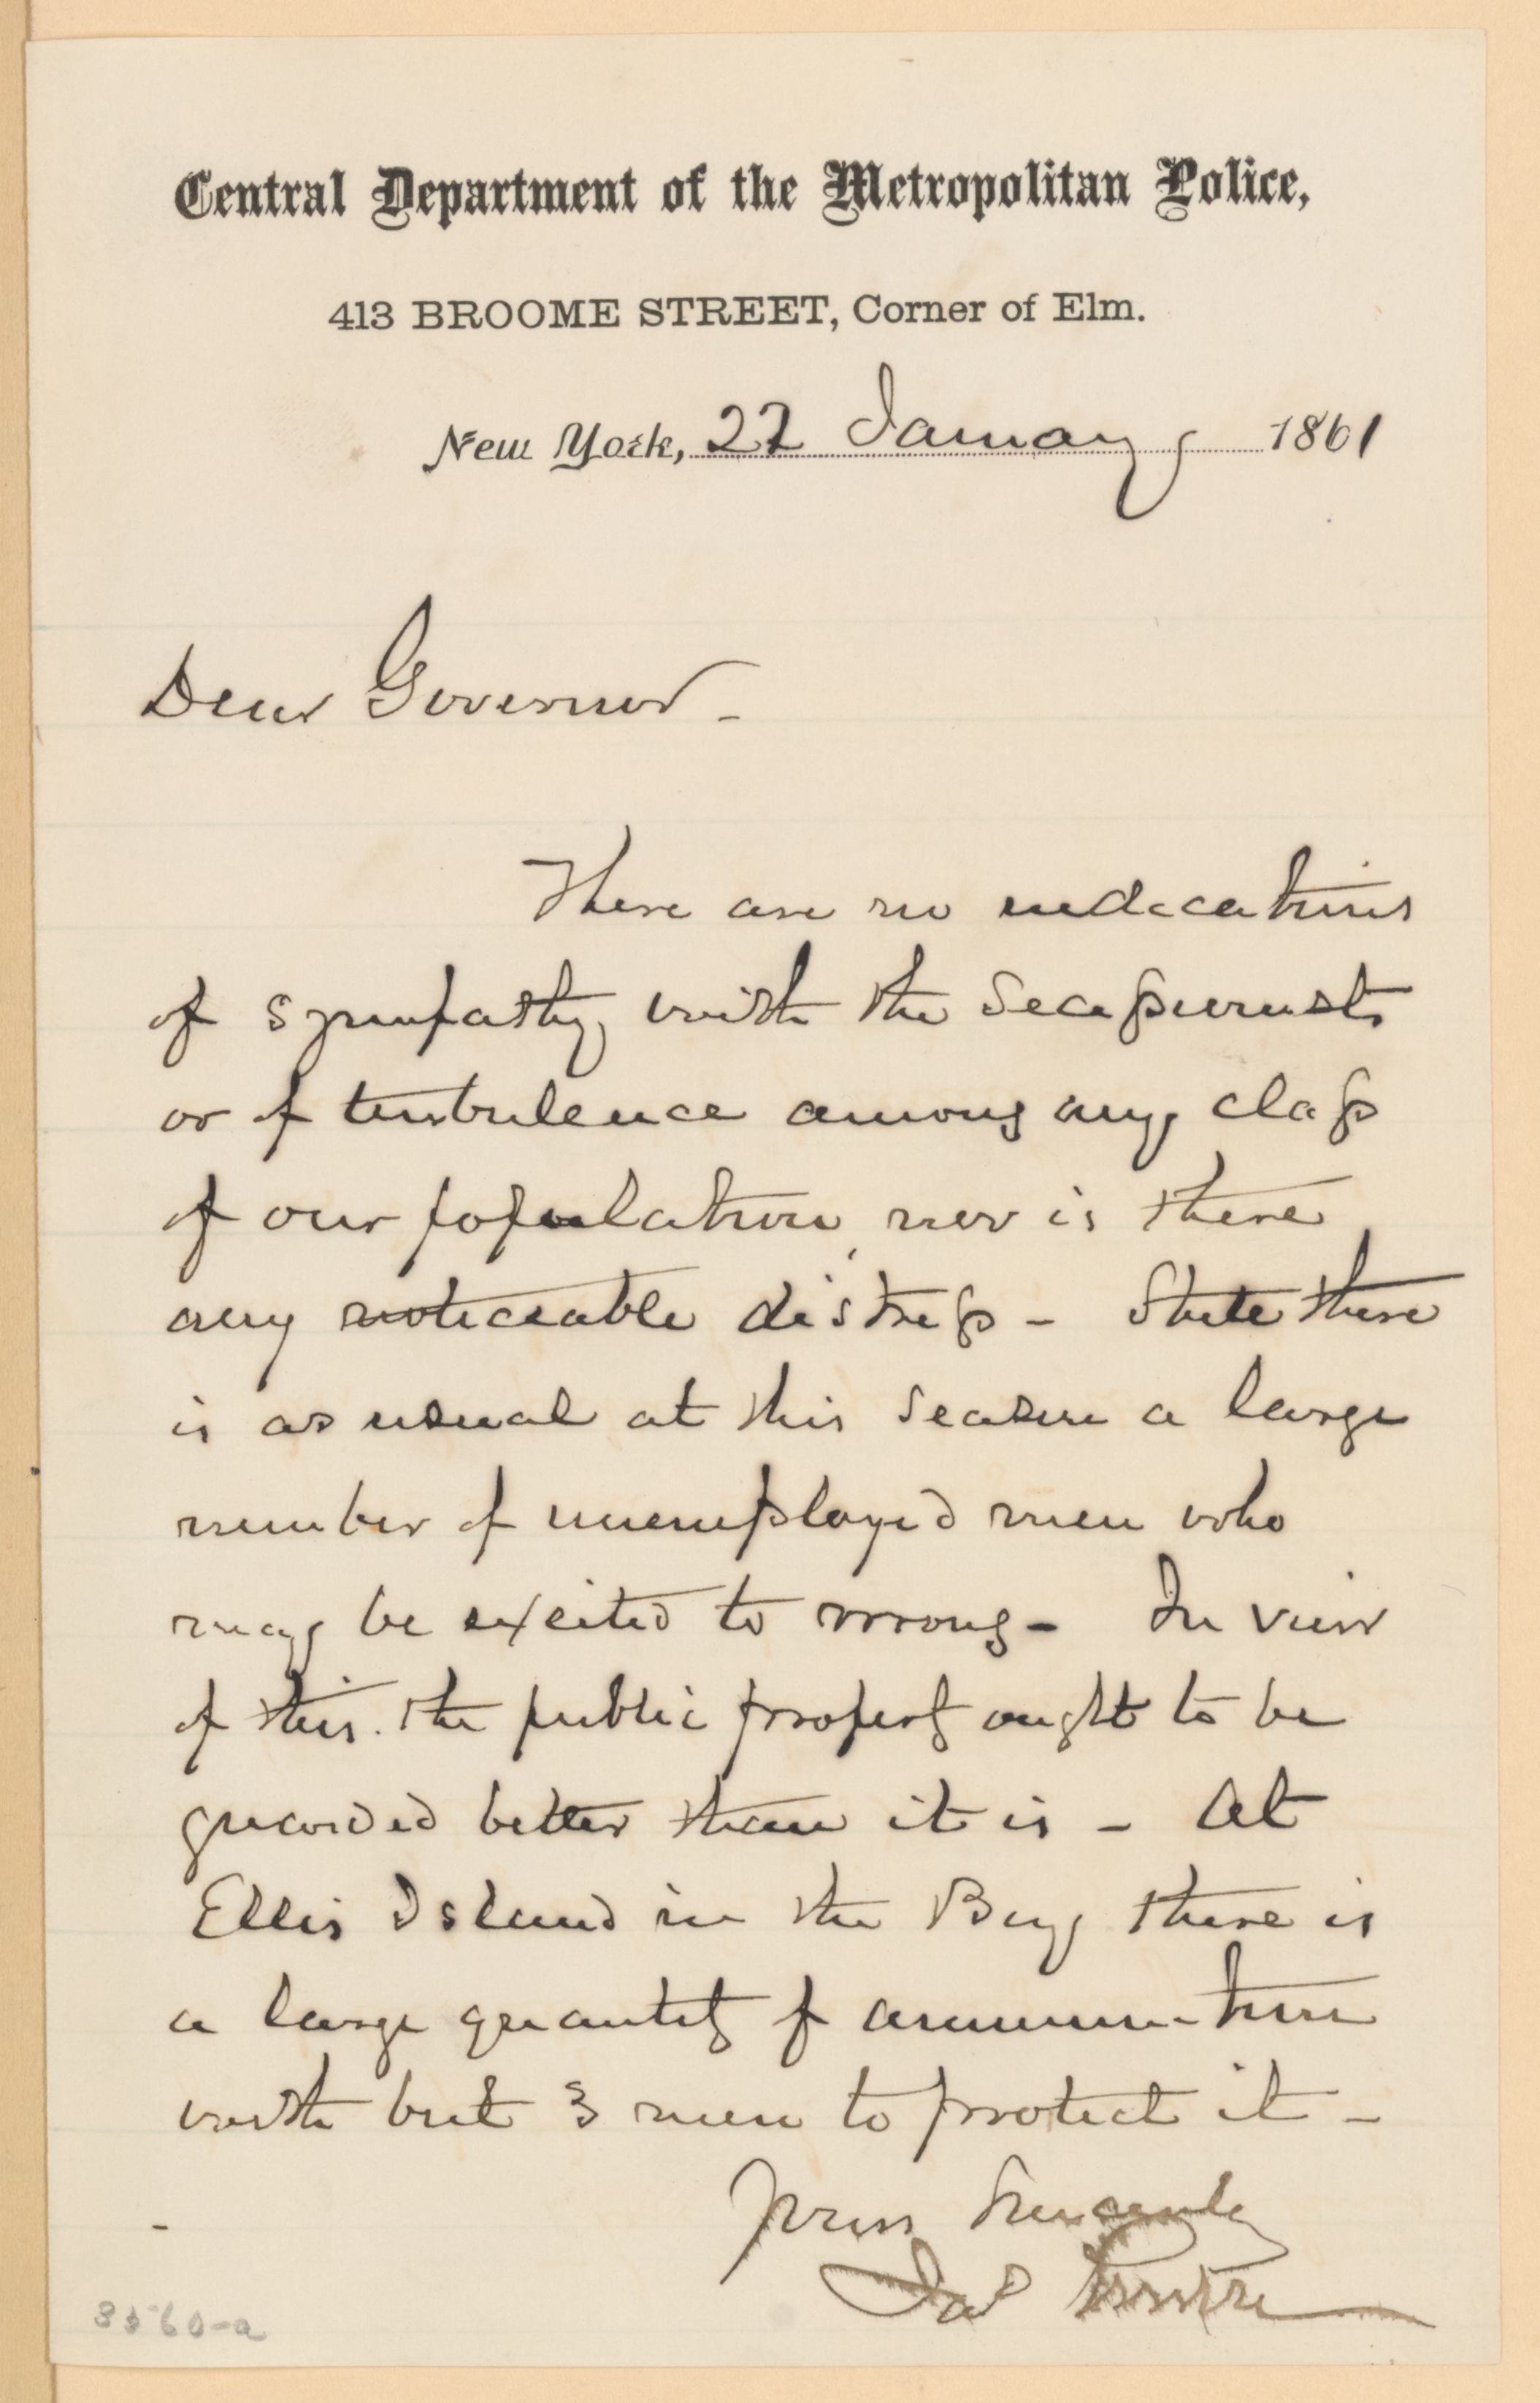 Central Department of the Metropolitan Police,
413 BROOME STREET, Corner of Elm.
New York, 22 January 1861
Dear Governor -
There are no indications
of sympathy with the Secessionists
or of turbulence among any class
of our population, nor is there
any noticeable distress - Still there
is as usual at this season a large
number of unemployed men who
may be excited to wrong - In view
of this. the public property ought to be
guarded better than it is - At
Ellis Island in the Bay there is
a large quantity of ammunition
with but 3 men to protect it -
Yours Sincerely
Jas
3560-a